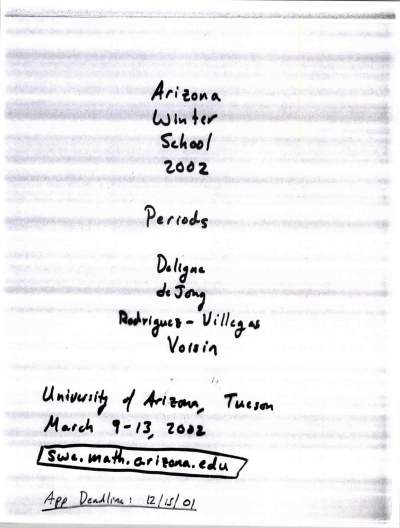 Arizona
Winter
School
2002
Periods
Deligne
de Jong
Rodriguez-Villegas
Voisin
University of Arizona, Tucson
March 9-13, 2002
swc.math.arizona.edu
App Deadline: 12/15/01